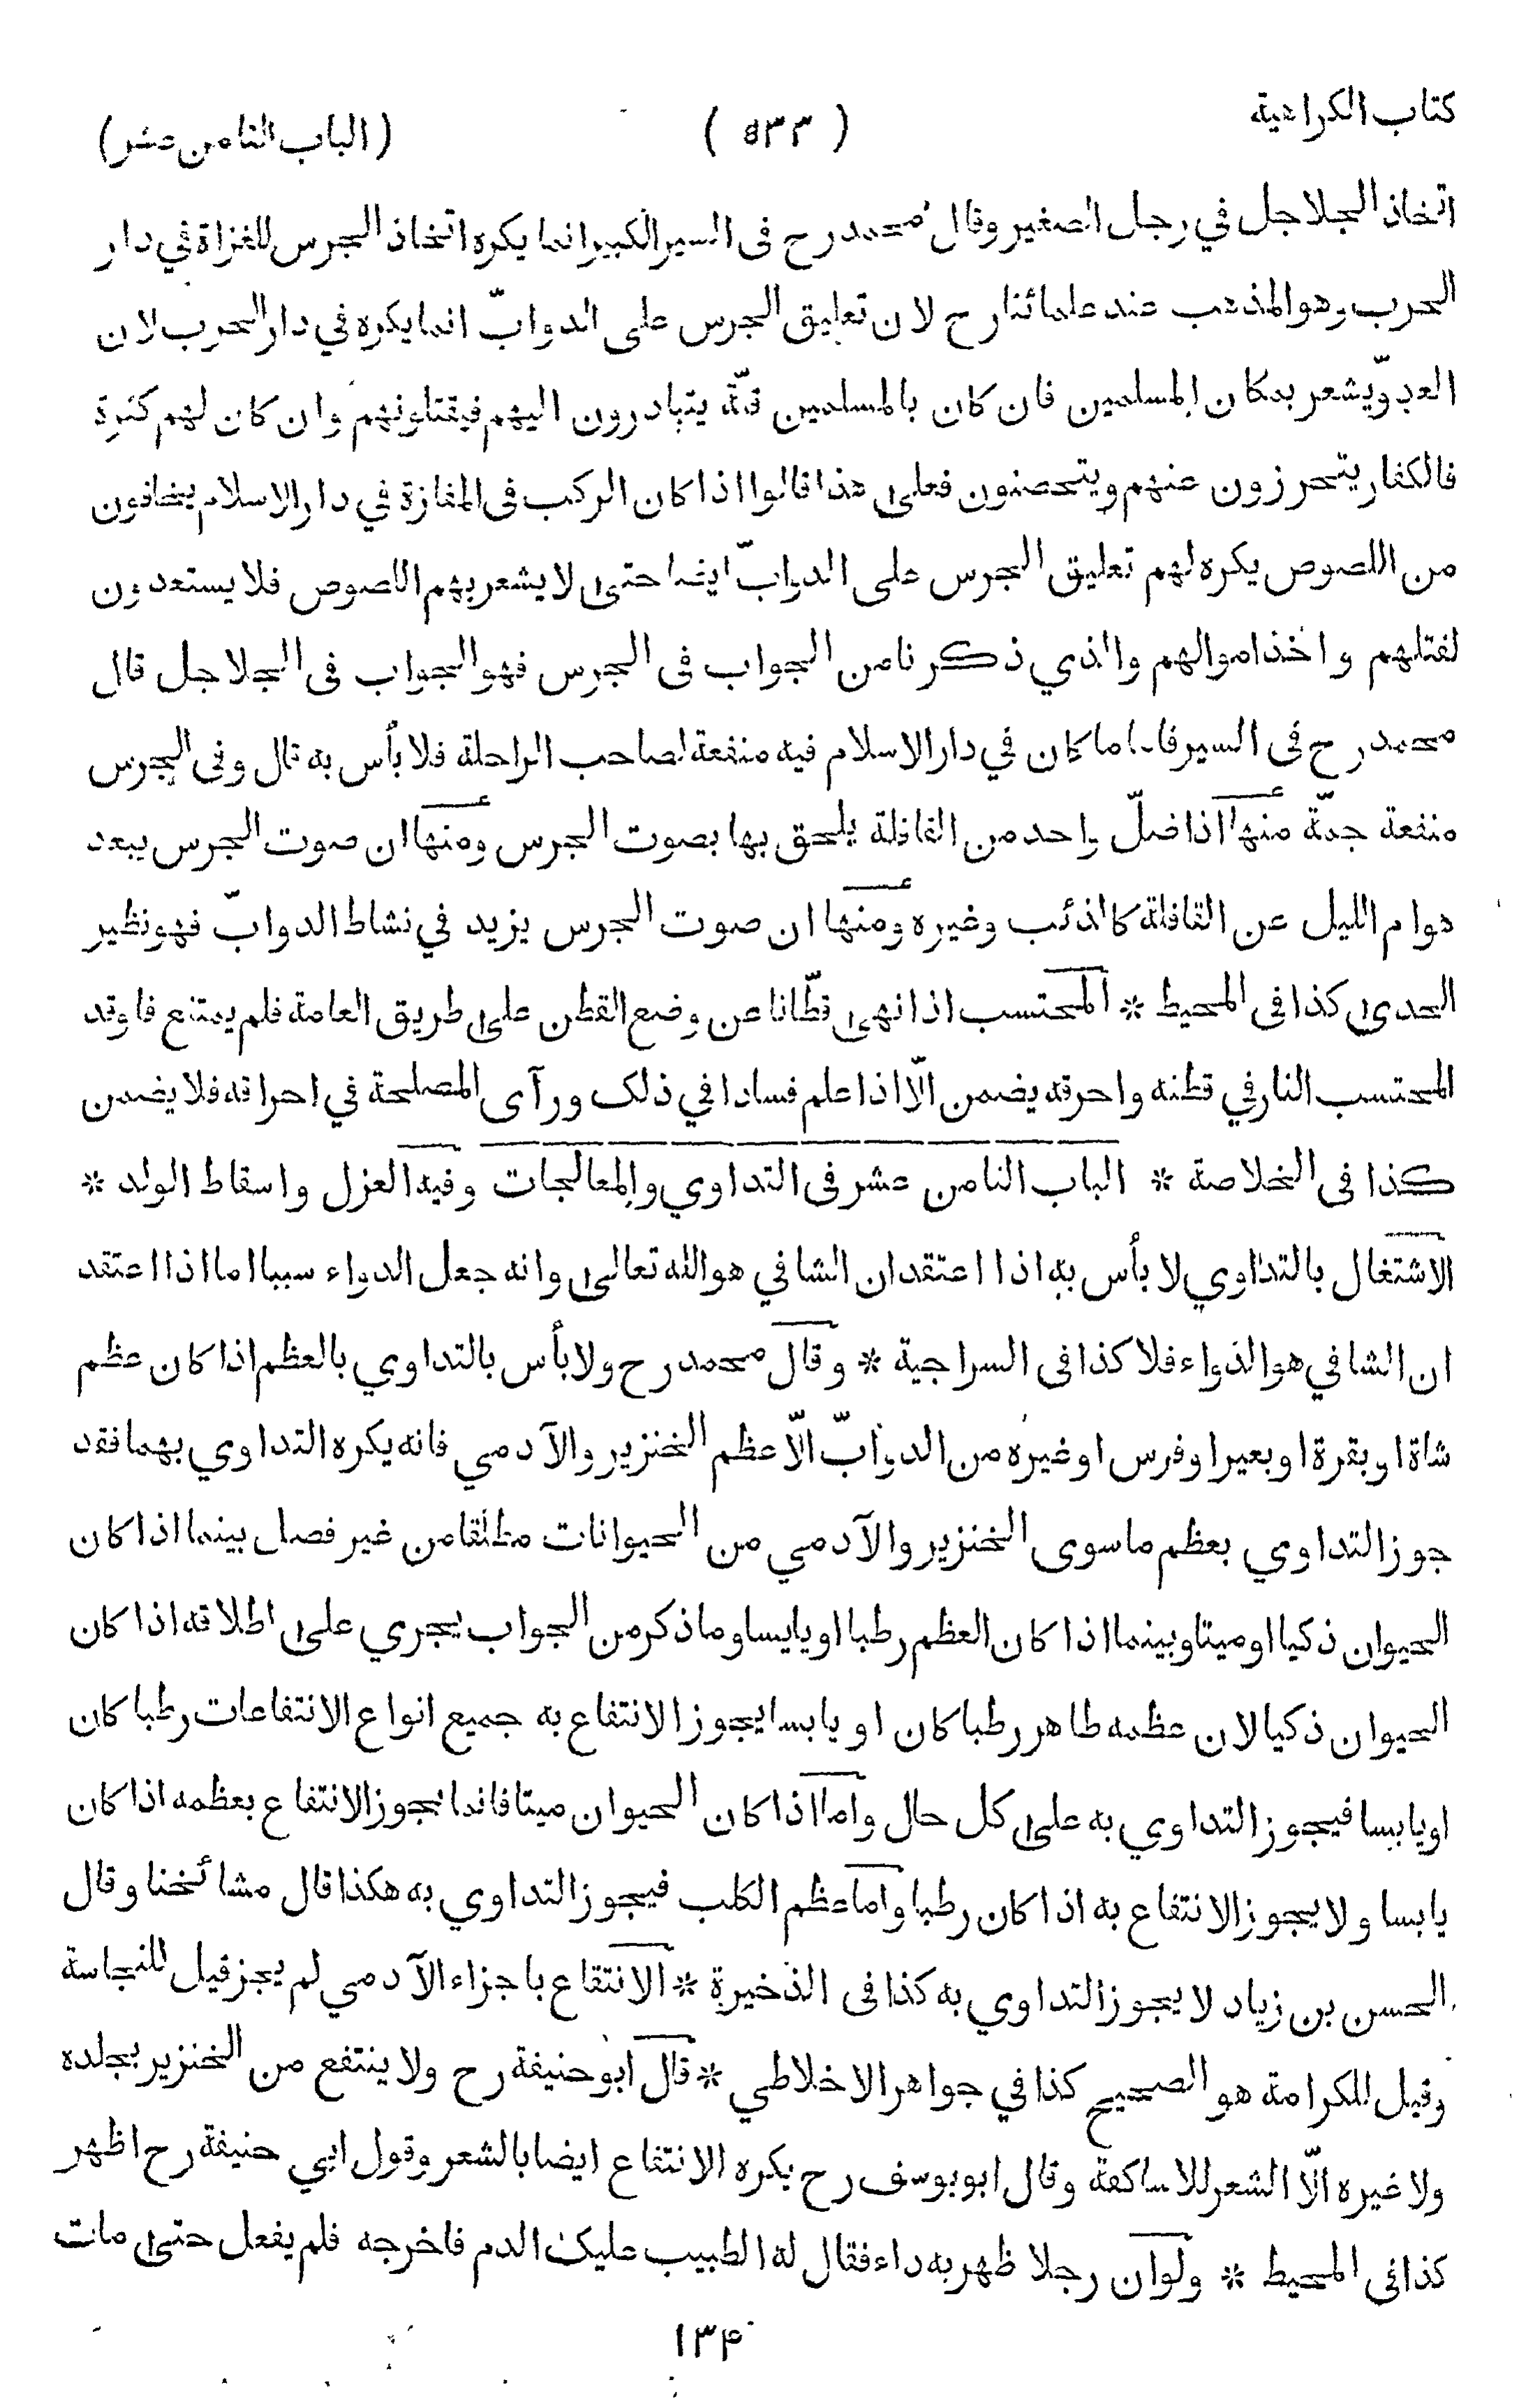 كتاب الكراهية
( ٥٣٣ )
( الباب الثامن عشر )
اتخاذ الجلاجل في رجل الصغير وقال محمد رح فى السير الكبير انما يكره اتخاذ الجرس للغزاة في دار
الحرب وهو المذهب عند علمائنا رح لان تعليق الجرس على الدوابّ انما يكره في دار الحرب لان
العدوّ يشعر بمكان المسلمين فان كان بالمسلمين قلّة يتبادرون اليهم فيقتلونهم وان كان لهم كثرة
فالكفار يتحرزون عنهم ويتحصنون فعلى هذا قالوا اذا كان الركب فى المفازة في دار الاسلام يخافون
من اللصوص يكره لهم تعليق الجرس على الدوابّ ايضا حتى لا يشعر بهم اللصوص فلا يستعدون
لقتلهم واخذ اموالهم والذي ذكرنا من الجواب فى الجرس فهو الجواب فى الجلاجل قال
محمد رح فى السير فاما ما كان في دار الاسلام فيه منفعة لصاحب الراحلة فلا بأس به قال وفى الجرس
منفعة جمّة منها اذا ضلّ واحد من القافلة يلحق بها بصوت الجرس ومنها ان صوت الجرس يبعد
هوام الليل عن القافلة كالذئب وغيره ومنها ان صوت الجرس يزيد في نشاط الدوابّ فهو نظير
الحدى كذا فى المحيط * المحتسب اذا نهى قطّانا عن وضع القطن على طريق العامة فلم يمتنع فاوقد
المحتسب النار في قطنه واحرقه يضمن الّا اذا علم فسادا في ذلك ورآى المصلحة في احراقه فلا يضمن
كذا فى الخلاصة * الباب الثامن عشر فى التداوي والمعالجات وفيه العزل واسقاط الولد *
الاشتغال بالتداوي لا بأس به اذا اعتقد ان الشافي هو الله تعالى وانه جعل الدواء سببا اما اذا اعتقد
ان الشافي هو الدواء فلا كذا فى السراجية * وقال محمد رح ولا بأس بالتداوي بالعظم اذا كان عظم
شاة او بقرة او بعير او فرس او غيره من الدوابّ الّا عظم الخنزير والآدمي فانه يكره التداوي بهما فقد
جوز التداوي بعظم ما سوى الخنزير والآدمي من الحيوانات مطلقا من غير فصل بينما اذا كان
الحيوان ذكيا او ميتا وبينما اذا كان العظم رطبا او يابسا وما ذكر من الجواب يجري على اطلاقه اذا كان
الحيوان ذكيا لان عظمه طاهر رطبا كان او يابسا يجوز الانتفاع به جميع انواع الانتفاعات رطبا كان
او يابسا فيجوز التداوي به على كل حال واما اذا كان الحيوان ميتا فانما يجوز الانتفاع بعظمه اذا كان
يابسا ولا يجوز الانتفاع به اذا كان رطبا واما عظم الكلب فيجوز التداوي به هكذا قال مشائخنا وقال
الحسن بن زياد لا يجوز التداوي به كذا فى الذخيرة * الانتفاع باجزاء الآدمي لم يجز قيل للنجاسة
وقيل للكرامة هو الصحيح كذا في جواهر الاخلاطي * قال ابو حنيفة رح ولا ينتفع من الخنزير بجلده
ولا غيره الّا الشعر للاساكفة وقال ابو يوسف رح يكره الانتفاع ايضا بالشعر وقول ابي حنيفة رح اظهر
كذا فى المحيط * ولو ان رجلا ظهر به داء فقال له الطبيب عليك الدم فاخرجه فلم يفعل حتى مات
١٣۴